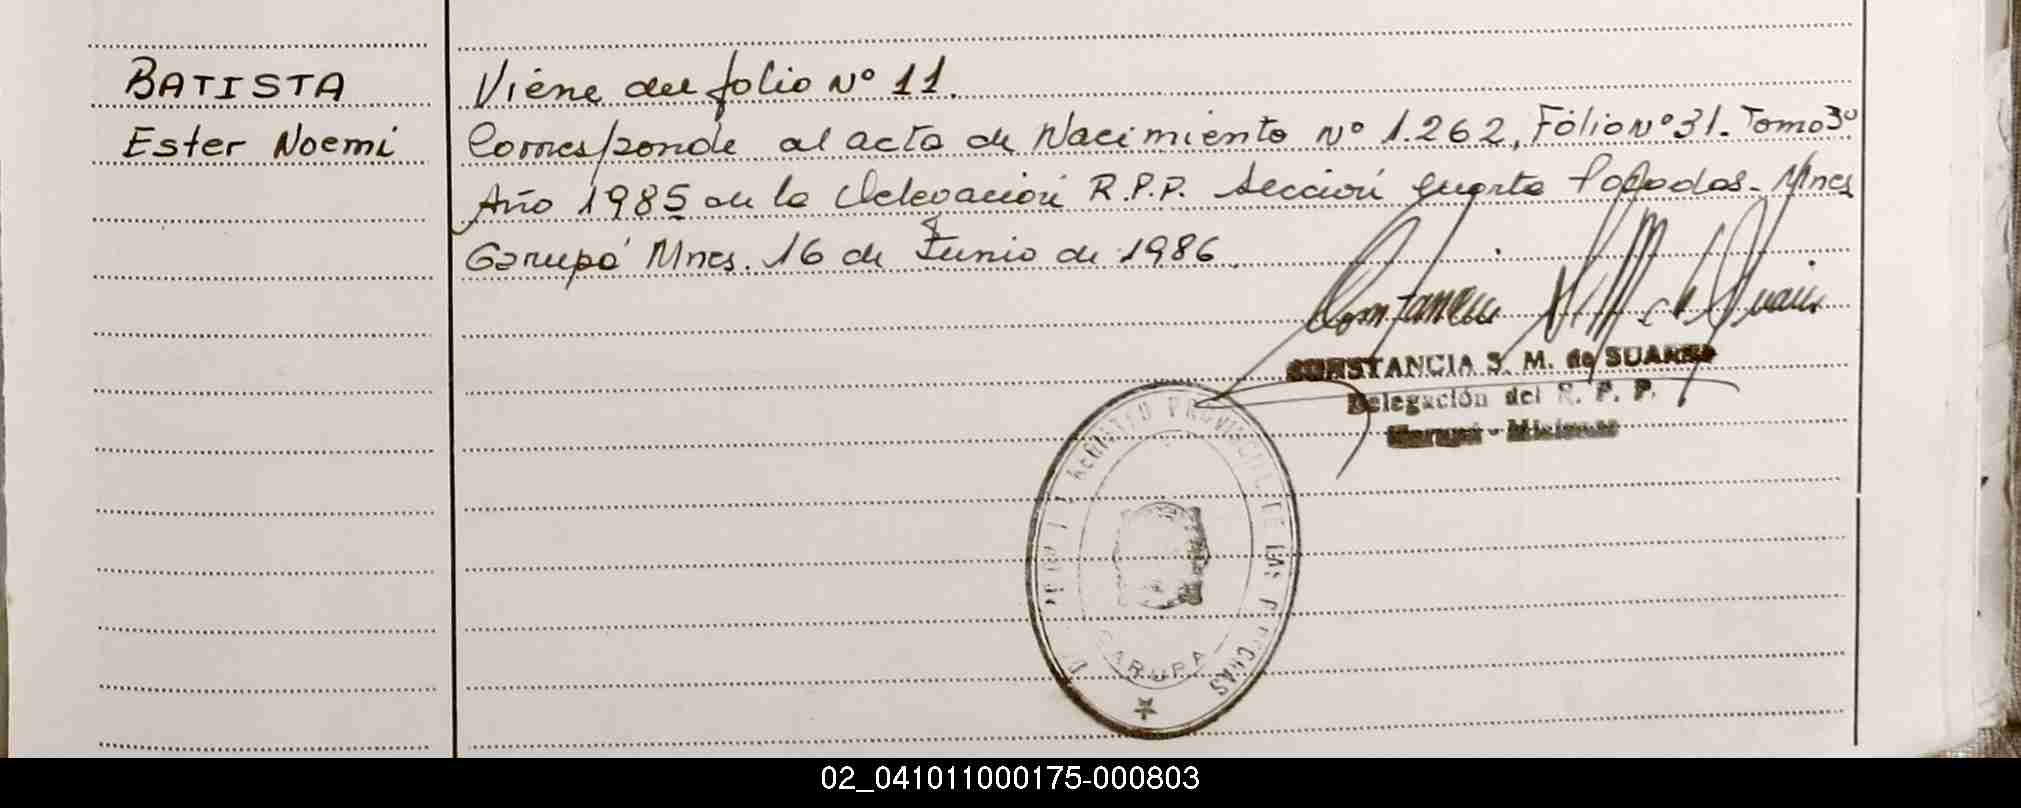 BATISTA
Ester Noemi
Viene del folio Nº 11.
Corresponde al acta de Nacimiento Nº 1.262, Fólio Nº 31. Tomo 3º
Año 1985 de la Delegación R.P.P. Sección Cuarta Posadas - Mnes
Garupá Mnes. 16 de Junio de 1986.
CONSTANCIA S. M. de SUAREZ
Delegación del R. P. P.
Garupá - Misiones
REGISTRO PROVINCIAL DE LAS PERSONAS
GARUPA
02_041011000175-000803